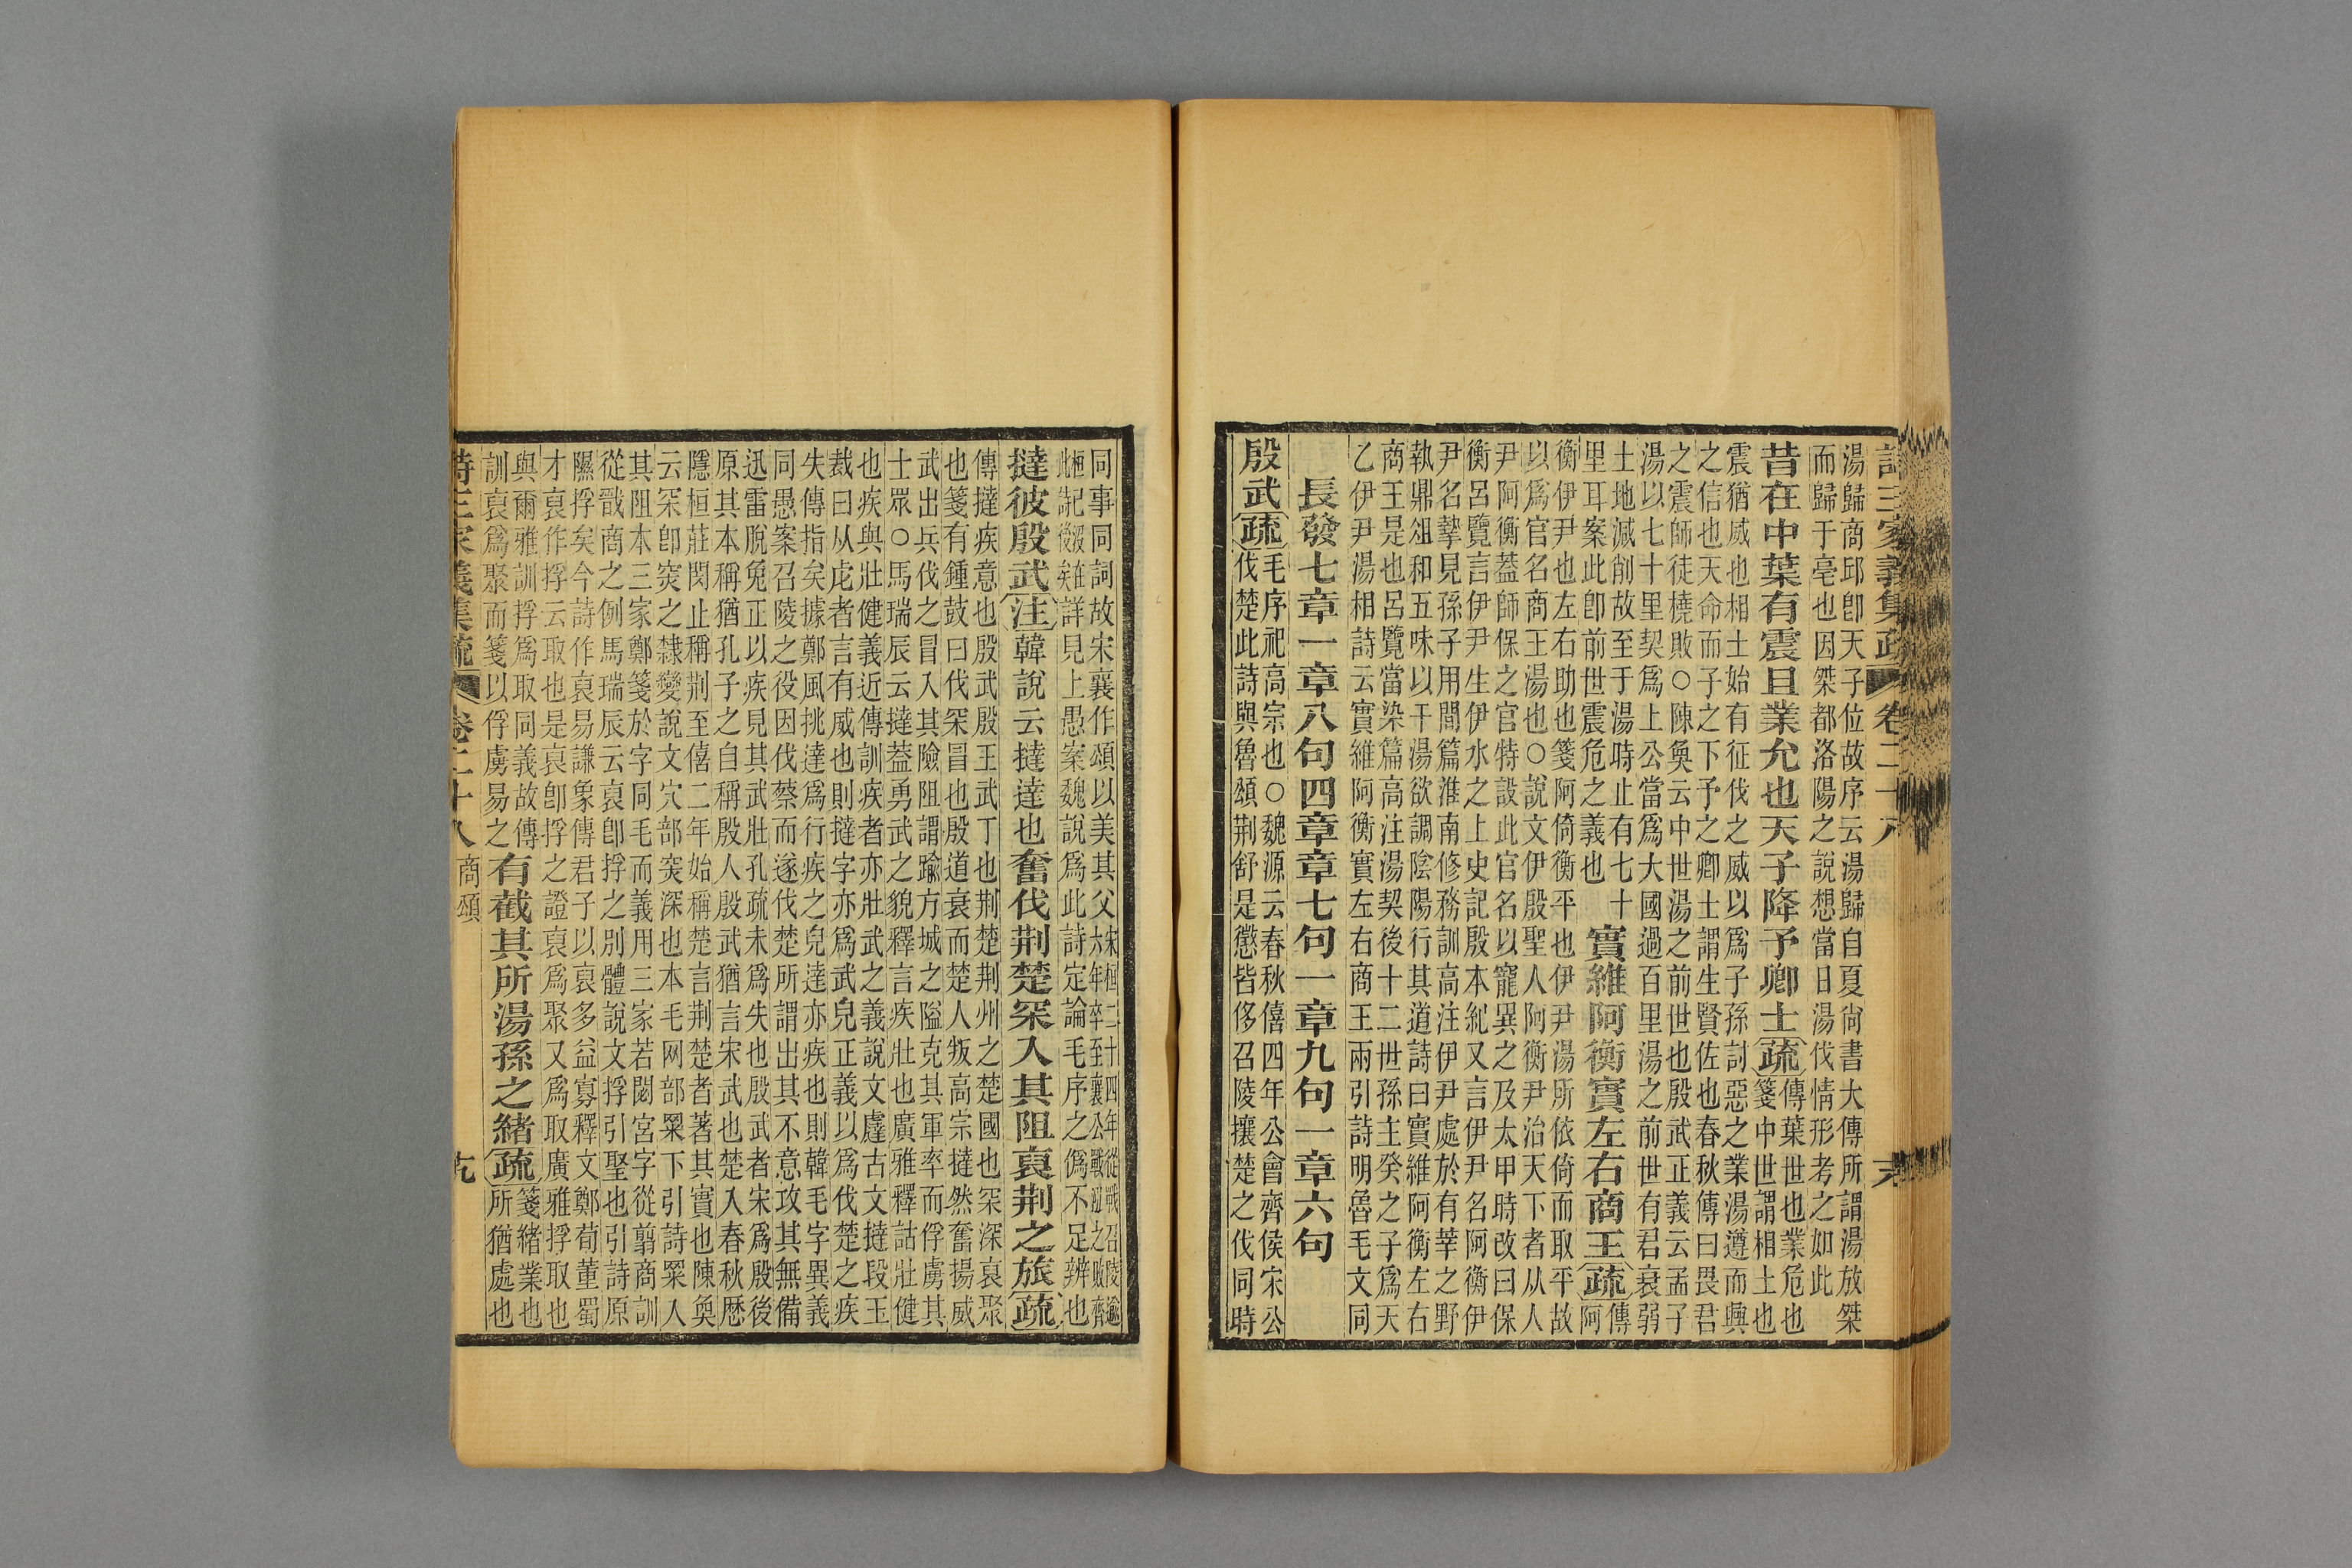 湯歸商邱卽天子位故序云湯歸自夏尙書大傳所謂湯放桀
而歸于亳也因桀都洛陽之說想當日湯伐情形考之如此
昔在中葉有震且業允也天子降予卿士疏
傳葉世也業危也
箋中世謂相土也
震猶威也相土始有征伐之威以爲子孫討惡之業湯遵而興
之信也天命而子之下予之卿士謂生賢佐也春秋傳曰畏君
之震師徒橈敗○陳奐云中世湯之前世也殷武正義云孟子
湯以七十里契爲上公當爲大國過百里湯之前世有君衰弱
土地減削故至于湯時止有七十
里耳案此卽前世震危之義也
實維阿衡實左右商王疏
傳
阿
衡伊尹也左右助也箋阿倚衡平也伊尹湯所依倚而取平故
以爲官名商王湯也○說文伊殷聖人阿衡尹治天下者从人
尹阿衡蓋師保之官特設此官名以寵異之及太甲時改曰保
衡呂覽言伊尹生伊水之上史記殷本紀又言伊尹名阿衡伊
尹名摯見孫子用間篇淮南修務訓高注伊尹處於有莘之野
執鼎俎和五味以干湯欲調陰陽行其道詩曰實維阿衡左右
商王是也呂覽當染篇高注湯契後十二世孫主癸之子爲天
乙伊尹湯相詩云實維阿衡實左右商王兩引詩明魯毛文同
長發七章一章八句四章章七句一章九句一章六句
殷武疏
毛序祀高宗也○魏源云春秋僖四年公會齊侯宋公
伐楚此詩與魯頌荆舒是懲皆侈召陵攘楚之伐同時
同事同詞故宋襄作頌以美其父
詳見上愚案魏說爲此詩定論毛序之僞不足辨也
撻彼殷武注韓說云撻達也奮伐荆楚罙入其阻裒荆之旅疏
傳撻疾意也殷武殷王武丁也荆楚荆州之楚國也罙深裒聚
也箋有鍾鼓曰伐罙冒也殷道衰而楚人叛高宗撻然奮揚威
武出兵伐之冒入其險阻謂踰方城之隘克其軍率而俘虜其
士眾○馬瑞辰云撻蓋勇武之貌釋言疾壯也廣雅釋詁壯健
也疾與壯健義近傳訓疾者亦壯武之義說文䖏古文撻段玉
裁曰从虍者言有威也則撻字亦爲武皃正義以爲伐楚之疾
失傳指矣據鄭風挑達爲行疾之皃達亦疾也則韓毛字異義
同愚案召陵之役因伐蔡而遂伐楚所謂出其不意攻其無備
迅雷脫兔正以疾見其武壯孔疏未爲失也殷武者宋爲殷後
原其本稱猶孔子之自稱殷人殷武猶言宋武也楚入春秋歷
隱桓莊閔止稱荆至僖二年始稱楚言荆楚者著其實也陳奐
云罙卽突之隸變說文穴部突深也本毛网部罙下引詩罙人
其阻本三家鄭箋於字同毛而義用三家若閟宮字從翦商訓
從戩商之例馬瑞辰云裒卽捊之別體說文捊引堅也引詩原
隰捊矣今詩作裒易謙象傳君子以裒多益寡釋文鄭荀董蜀
才裒作捊云取也是裒卽捊之證裒爲聚又爲取廣雅捊取也
與爾雅訓捊爲取同義故傳
訓裒爲聚而箋以俘虜易之
有截其所湯孫之緒疏
箋緒業也
所猶處也